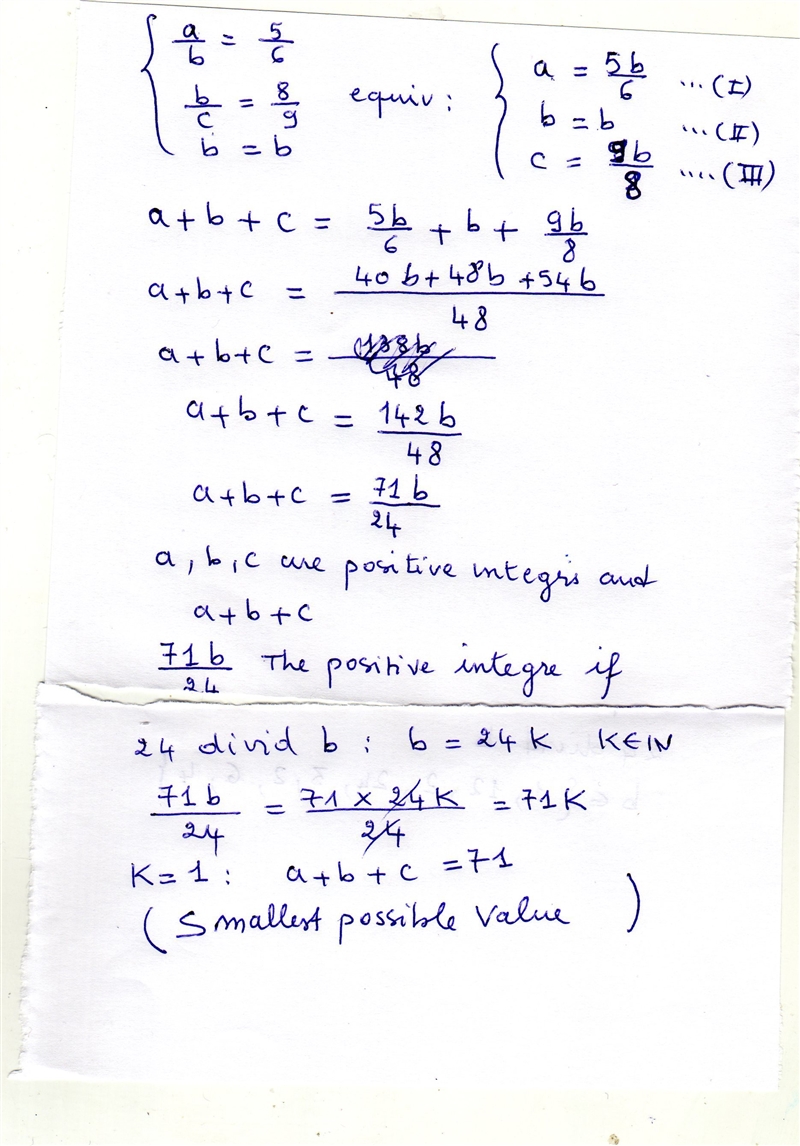 a/b = 5/6
b/c = 8/9
b = b
equiv :
a = 5b/6 ...(I)
b = b ...(II)
c = 9b/8 ....(III)
a + b + c = 5b/6 + b + 9b/8
a + b + c = 40b + 48b + 54b / 48
a + b + c =
a + b + c = 142b/48
a + b + c = 71b/24
a, b, c are positive integrs and
a + b + c
71b/24 The positive integre if
24 divid b : b = 24K K∈IN
71b/24 = 71 x 24K/24 = 71K
K = 1 : a + b + c = 71
(Smallest possible Value)